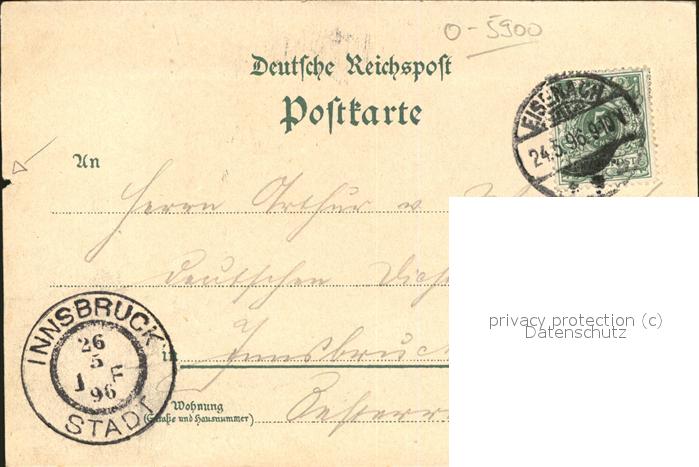 0-5900
Deutsche Reichspost
Postkarte
EISENACH
24.5.96.9-10V
An
Herrn Arthur v.
deutschen
privacy protection (c)
Datenschutz
INNSBRUCK
26
5
1 F
96
STADT
in Innsbruck
Wohnung
(Straße und Hausnummer)